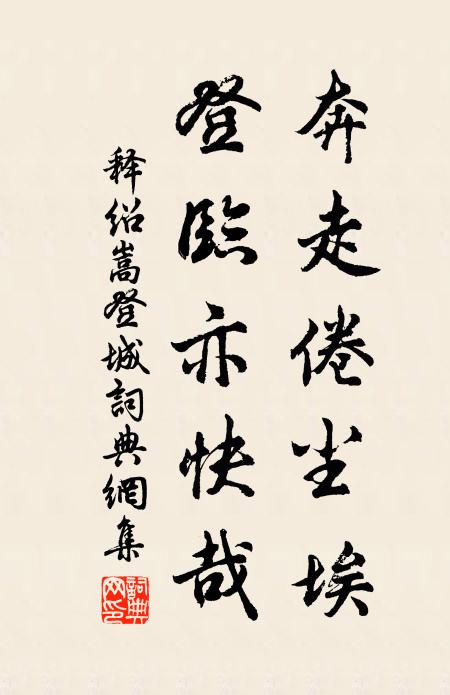 奔走倦尘埃
登臨亦快哉
释绍嵩登城詞典網集
詞典网印